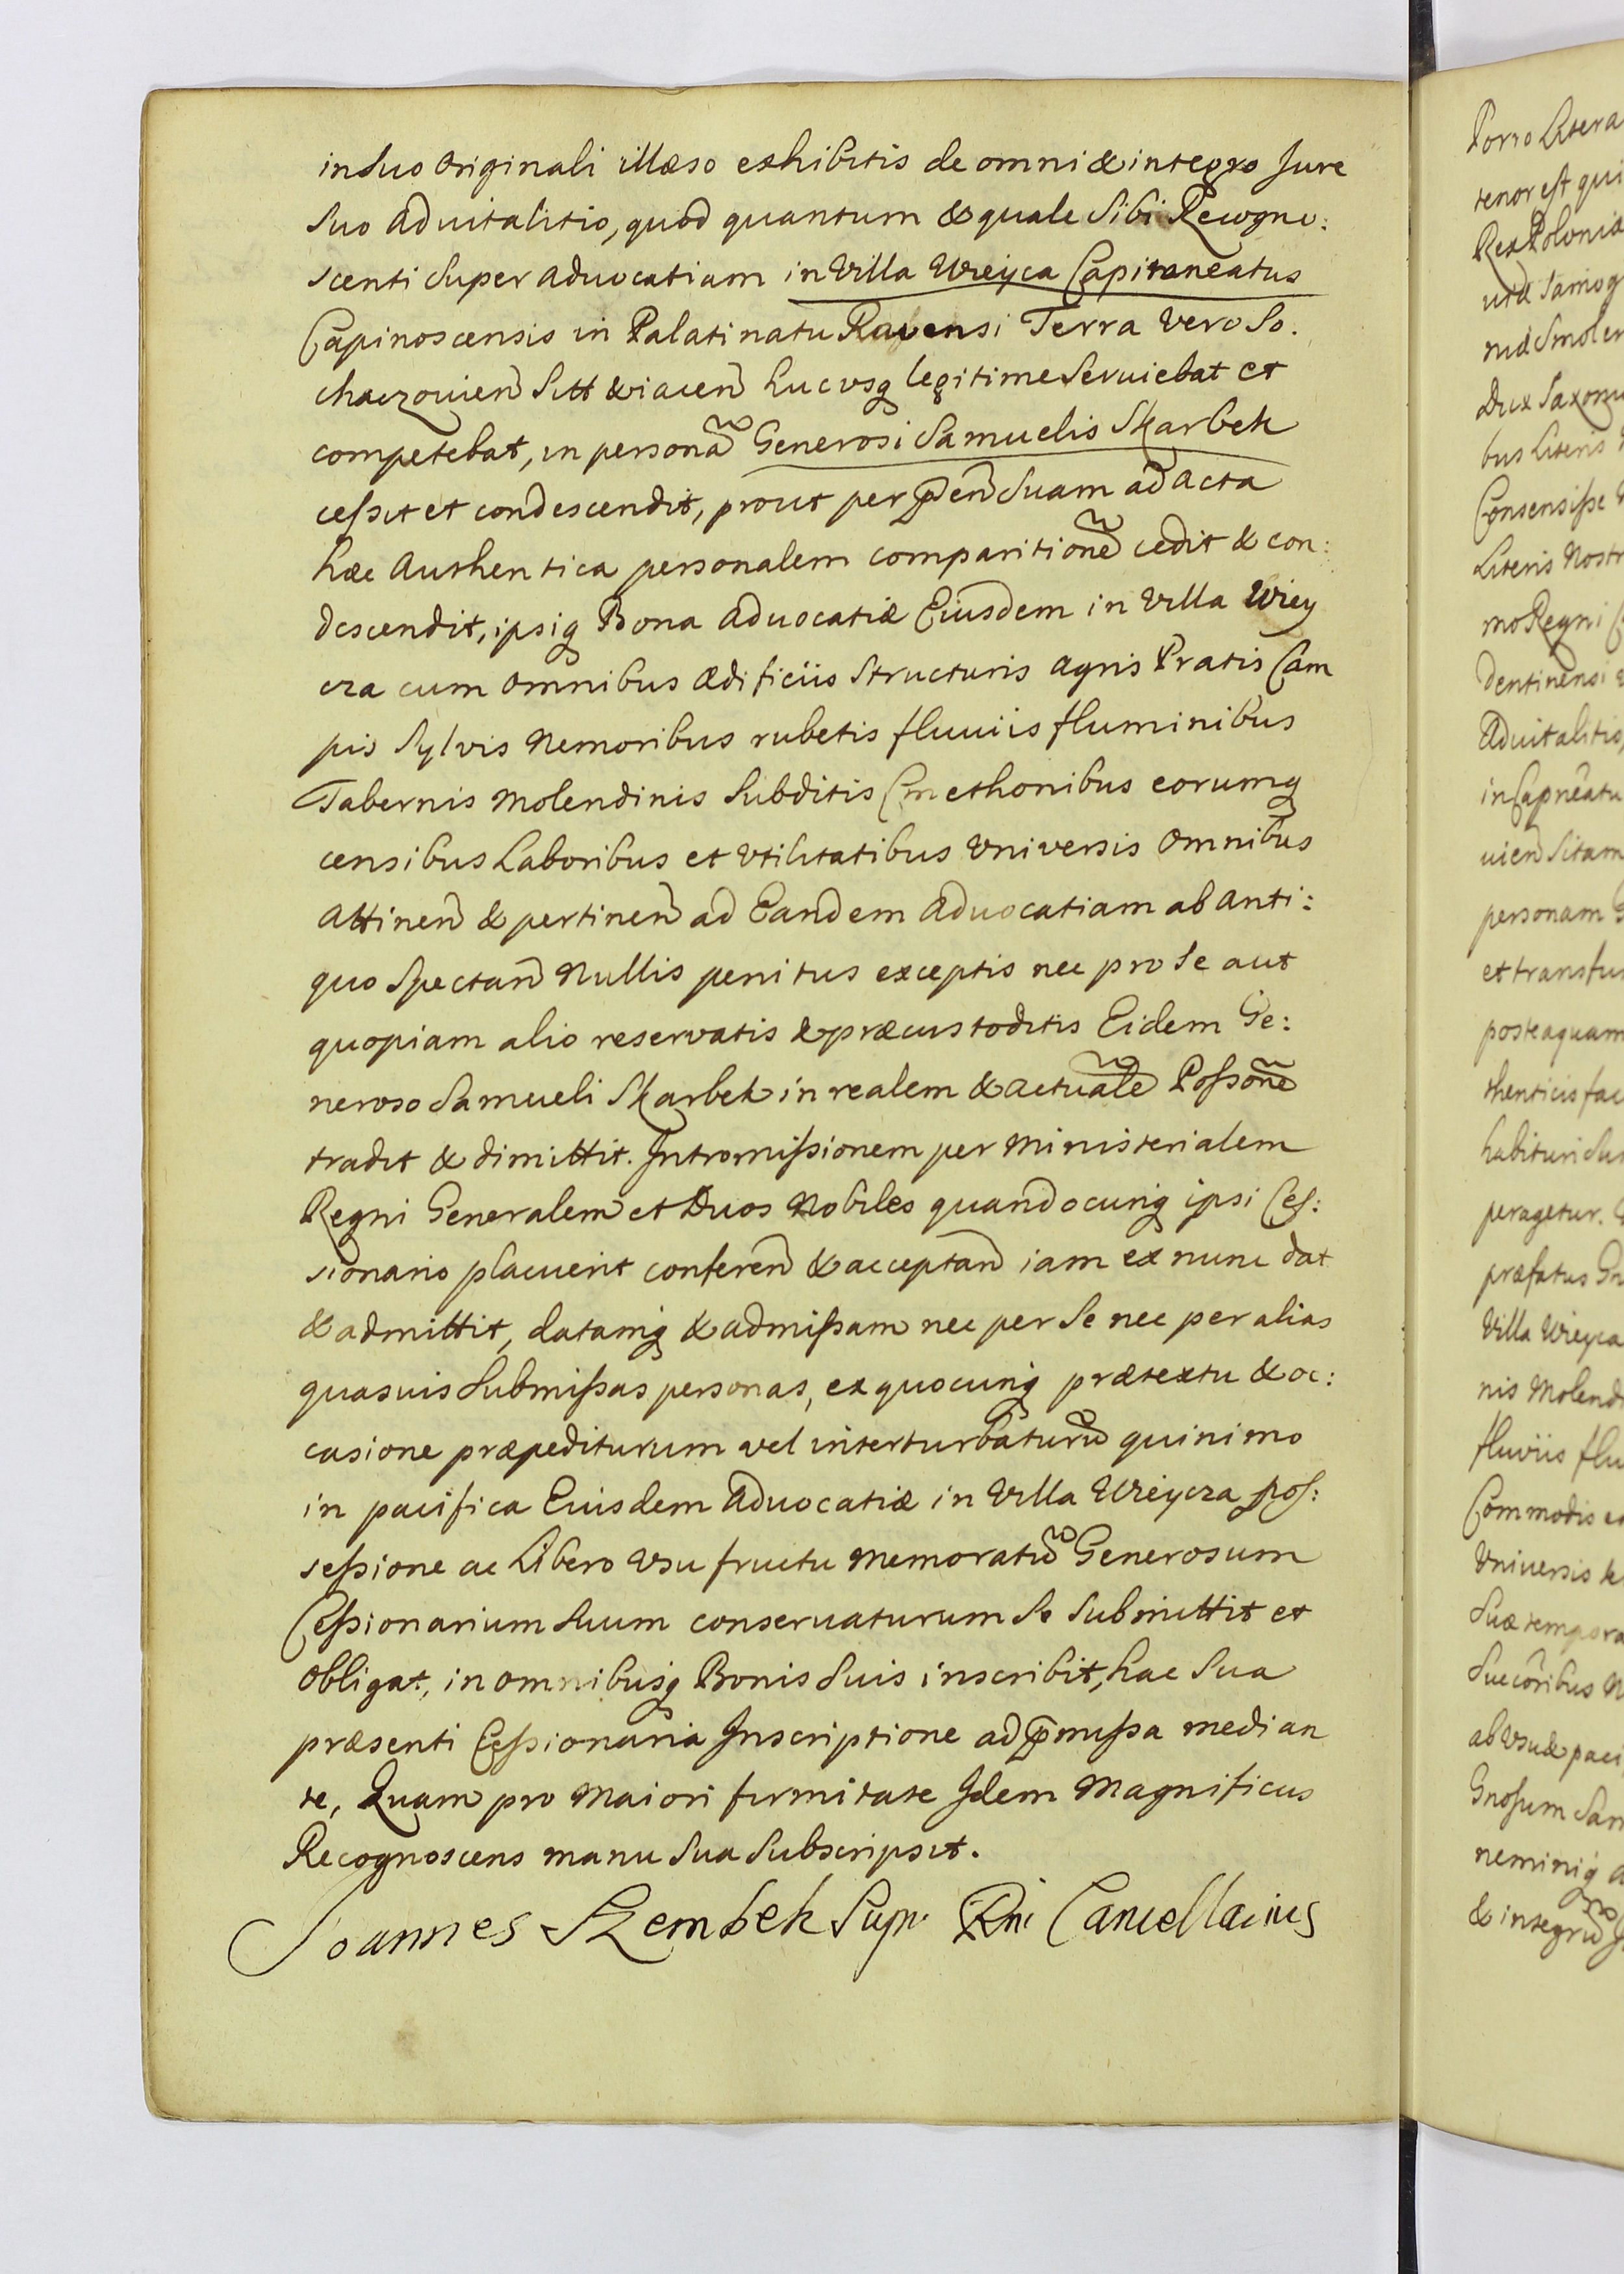 in suo Originali illæso exhibitis de omni & integro Jure
suo aduitalitio, quod quantum & quale sibi Recogno:
scenti super aduocatiam in Villa Wieyca Capitaneatus
Capinoscensis in Palatinatu Ravensi Terra vero So.
chaczouien̄ Sitt & iacen̄ hucusq legitime seruiebat et
competebat, in personā Generosi Samuelis Skarbek
cessit et condescendit, prout per p̄en̄ Suam ad Acta
hæc Authentica personalem comparitionē cedit & con:
descendit, ipsiq Bona aduocatiæ Eiusdem in Villa Wiey
cza cum omnibus ædificiis structuris agris Pratis Cam
pis Sylvis Nemoribus rubetis fluuiis fluminibus
Tabernis Molendinis Subditis Cmethonibus eorumq
censibus Laboribus et Vtilitatibus Vniversis omnibus
Attinen̄ & pertinen̄ ad Eandem Aduocatiam ab Anti:
quo Spectan̄ Nullis penitus exceptis nec pro Se aut
quopiam alio reservatis & præcustoditis Eidem Ge:
neroso Samueli Skarbek in realem & actualē Possonē
tradit & dimittit. Intromissionem per Ministerialem
Regni Generalem et Duos Nobiles quandocunq ipsi Ces:
sionario placuerit conferen̄ & acceptan̄ iam ex nunc dat
& admittit, datamq & admissam nec per Se nec per alias
quasuis Submissas personas, ex quocunq prætextu & oc:
casione præpediturum vel interturbaturū quinimo
in pacifica Eiusdem Aduocatiæ in Villa Wieycza pos:
sessione ac Libero Vsu fructu Memoratū Generosum
Cessionarium Suum conseruaturum Se Submittit et
Obligat, in omnibusq Bonis Suis inscribit, hac Sua
præsenti Cessionaria Inscriptione ad p̄missa median
te, Quam pro Maiori firmitate Idem Magnificus
Recognoscens manu Sua Subscripsit.
Joannes Szembek Sup. Rni Cancellarius
Porro Litera
tenor est qui
Rex Poloniæ
uiæ Samog
niæ Smolen
Dux Saxoniæ
bus Literis
Consensisse
Literis Nostr
mo Regni
dentinensi
Aduitalitio,
in Capneatu
uien̄ Sitam
personam
et transfus
posteaquam
thenticis fac
habituri Sus
peragetur.
præfatus Gn
Villa Wieyca
nis Molend
fluviis flu
Commodis
Vniversis
Suæ tempora
Succoribus
ab Vsu & paci
Gnosum Sam
neminiq
& integrū